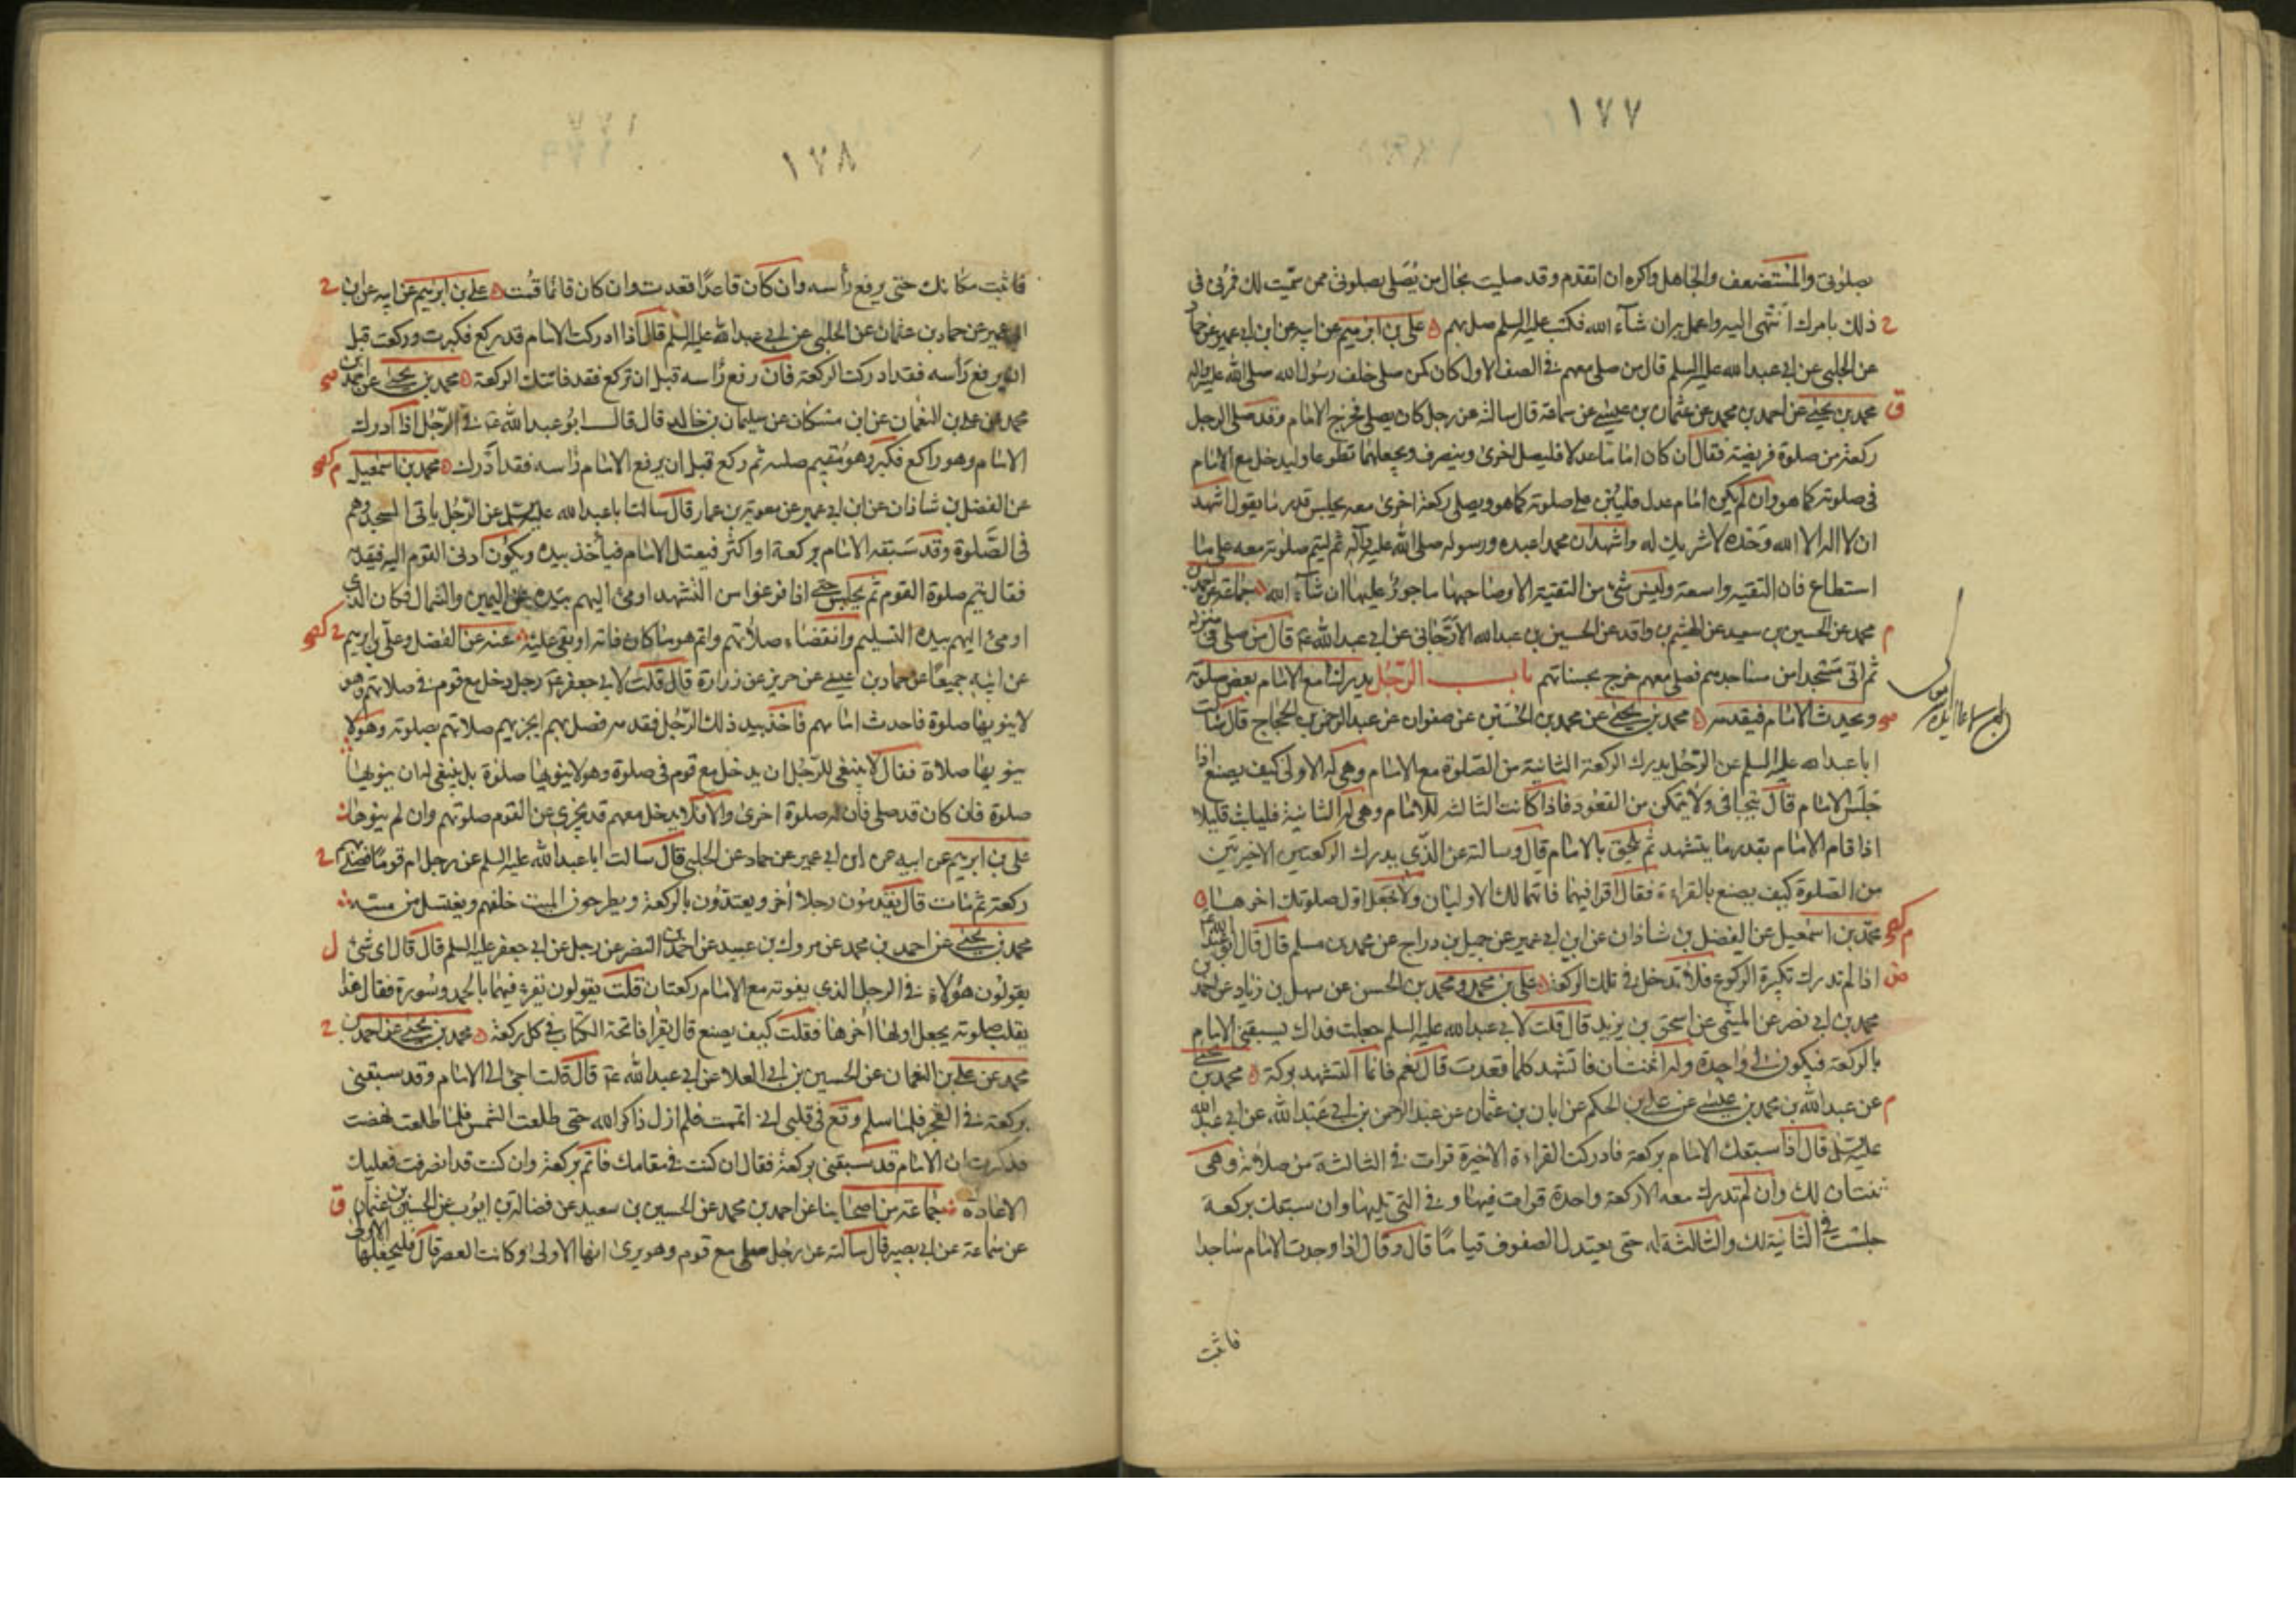 ١٧٧
بصلوتى والمستضعف والجاهل واكره ان اتقدم وقد صليت بحال من يصلى بصلوتى ممن سميت لك فمرنى فى
ذلك بامرك انتهى اليه واعمل به ان شاء الله فكتب عليه السلم صل بهم علي بن ابرهيم عن ابيه عن ابن ابى عمير عن حماد
عن الحلبى عن ابى عبد الله عليه السلم قال من صلى معهم فى الصف الاول كان كمن صلى خلف رسول الله صلى الله عليه واله
محمد بن يحيى عن احمد بن محمد عن عثمان بن عيسى عن سماعة قال سالته عن رجل كان يصلى فخرج الامام وقد صلى الرجل
ركعة من صلوة فريضة فقال ان كان اماما عدلا فليصل اخرى وينصرف ويجعلهما تطوعا وليدخل مع الامام
فى صلوته كما هو وان لم يكن امام عدل فليبن على صلوته كما هو ويصلى ركعة اخرى معه يجلس قدر ما يقول اشهد
ان لا اله الا الله وحده لا شريك له واشهد ان محمدا عبده ورسوله صلى الله عليه وآله ثم ليتم صلوته معه على ما
استطاع فان التقية واسعة وليس شئ من التقية الا وصاحبها ماجور عليها ان شاء الله جماعة عن احمد بن
محمد عن الحسين بن سعيد عن الهيثم بن واقد عن الحسين بن عبد الله الارجانى عن ابى عبد الله ع قال من صلى فى منزله
ثم اتى مسجدا من مساجدهم فصلى معهم خرج بحسناتهم باب الرجل يدرك مع الامام بعض صلوته
ويحدث الامام فيقدمه محمد بن يحيى عن محمد بن الحسين عن صفوان عن عبد الرحمن بن الحجاج قال سالت
ابا عبد الله عليه السلم عن الرجل يدرك الركعة الثانية من الصلوة مع الامام وهى له الاولى كيف يصنع اذا
جلس الامام قال يتجافى ولا يتمكن من القعود فاذا كانت الثالثة للامام وهى له الثانية فليلبث قليلا
اذا قام الامام بقدر ما يتشهد ثم يلحق بالامام قال وسالته عن الذى يدرك الركعتين الاخيرتين
من الصلوة كيف يصنع بالقراءة فقال اقرا فيهما فانهما لك الاوليان ولا تجعل اول صلوتك اخرها
محمد بن اسمعيل عن الفضل بن شاذان عن ابن ابى عمير عن جميل بن دراج عن محمد بن مسلم قال قال ابو عبد الله ع
اذا لم تدرك تكبيرة الركوع فلا تدخل فى تلك الركعة على بن محمد ومحمد بن الحسن عن سهل بن زياد عن احمد بن
محمد بن ابى نصر عن الميثمى عن اسحق بن يزيد قال قلت لابى عبد الله عليه السلم جعلت فداك يسبقنى الامام
بالركعة فيكون لى واحدة وله اثنتان فاتشهد كلما قعدت قال نعم فانما التشهد بركة محمد بن يحيى
عن عبد الله بن محمد بن عيسى عن على بن الحكم عن ابان بن عثمان عن عبد الرحمن بن ابى عبد الله عن ابى عبد الله
عليه السلم قال اذا سبقك الامام بركعة فادركت القراءة الاخيرة قرات فى الثالثة من صلاته وهى
ثنتان لك وان لم تدرك معه الا ركعة واحدة قرات فيها وفى التى تليها وان سبقك بركعة
جلست فى الثانية لك والثالثة له حتى يعتدل الصفوف قياما قال وقال اذا وجدت الامام ساجدا
فاثبت
١٧٨
فاثبت مكانك حتى يرفع رأسه وان كان قاعدا قعدت وان كان قائما قمت على بن ابرهيم عن ابيه عن ابن
ابى عمير عن حماد بن عثمان عن الحلبى عن ابى عبد الله عليه السلم قال اذا ادركت الامام قد ركع فكبرت وركعت قبل
ان يرفع رأسه فقد ادركت الركعة فان رفع رأسه قبل ان تركع فقد فاتتك الركعة محمد بن يحيى عن احمد بن
محمد عن على بن النعمان عن ابن مسكان عن سليمان بن خالد قال قال ابو عبد الله ع فى الرجل اذا ادرك
الامام وهو راكع فكبر وهو مقيم صلبه ثم ركع قبل ان يرفع الامام رأسه فقد ادرك محمد بن اسمعيل
عن الفضل بن شاذان عن ابن ابى عمير عن معوية بن عمار قال سالت ابا عبد الله عليه السلم عن الرجل ياتى المسجد وهم
فى الصلوة وقد سبقه الامام بركعة او اكثر فيعتل الامام فيأخذ بيده ويكون ادنى القوم اليه فيقدمه
فقال يتم صلوة القوم ثم يجلس حتى اذا فرغوا من التشهد اومئ اليهم بيده عن اليمين والشمال فكان الذى
اومئ اليهم بيده التسليم وانقضاء صلاتهم واتم هو ما كان فاته او بقى عليه عنه عن الفضل وعلى بن ابرهيم
عن ابيه جميعا عن حماد بن عيسى عن حريز عن زرارة قال قلت لابى جعفر ع رجل دخل مع قوم فى صلاتهم وهو
لا ينويها صلوة فاحدث امامهم فاخذ بيد ذلك الرجل فقدمه فصلى بهم ايجزيهم صلاتهم بصلوته وهو لا
ينويها صلاة فقال لا ينبغى للرجل ان يدخل مع قوم فى صلوة وهو لا ينويها صلوة بل ينبغى له ان ينويها
صلوة فان كان قد صلى فان له صلوة اخرى والا فلا يدخل معهم قد يجزى عن القوم صلوتهم وان لم ينوها
على بن ابرهيم عن ابيه عن ابن ابى عمير عن حماد عن الحلبى قال سالت ابا عبد الله عليه السلم عن رجل ام قوما فصلى بهم
ركعة ثم مات قال يقدمون رجلا آخر ويعتدون بالركعة ويطرحون الميت خلفهم ويغتسل من مسه
محمد بن يحيى عن احمد بن محمد عن مروك بن عبيد عن احمد بن النضر عن رجل عن ابى جعفر عليه السلم قال قال اى شئ
يقولون هؤلاء فى الرجل الذى يفوته مع الامام ركعتان قلت يقولون يقرء فيهما بالحمد وسورة فقال هذا
يقلب صلوته يجعل اولها اخرها فقلت كيف يصنع قال يقرا فاتحة الكتاب فى كل ركعة محمد بن يحيى عن احمد بن
محمد عن على بن النعمان عن الحسين بن ابى العلا عن ابى عبد الله ع قال قلت اجئ الى الامام وقد سبقنى
بركعة فى الفجر فلما سلم وقع فى قلبى انى اتممت فلم ازل ذاكرا لله حتى طلعت الشمس فلما طلعت نهضت
فذكرت ان الامام قد سبقنى بركعة فقال ان كنت فى مقامك فاتم بركعة وان كنت قد انصرفت فعليك
الاعادة جماعة من اصحابنا عن احمد بن محمد عن الحسين بن سعيد عن فضالة بن ايوب عن الحسين بن عثمان
عن سماعة عن ابى بصير قال سالته عن رجل صلى مع قوم وهو يرى انها الاولى وكانت العصر قال فليجعلها الاولى